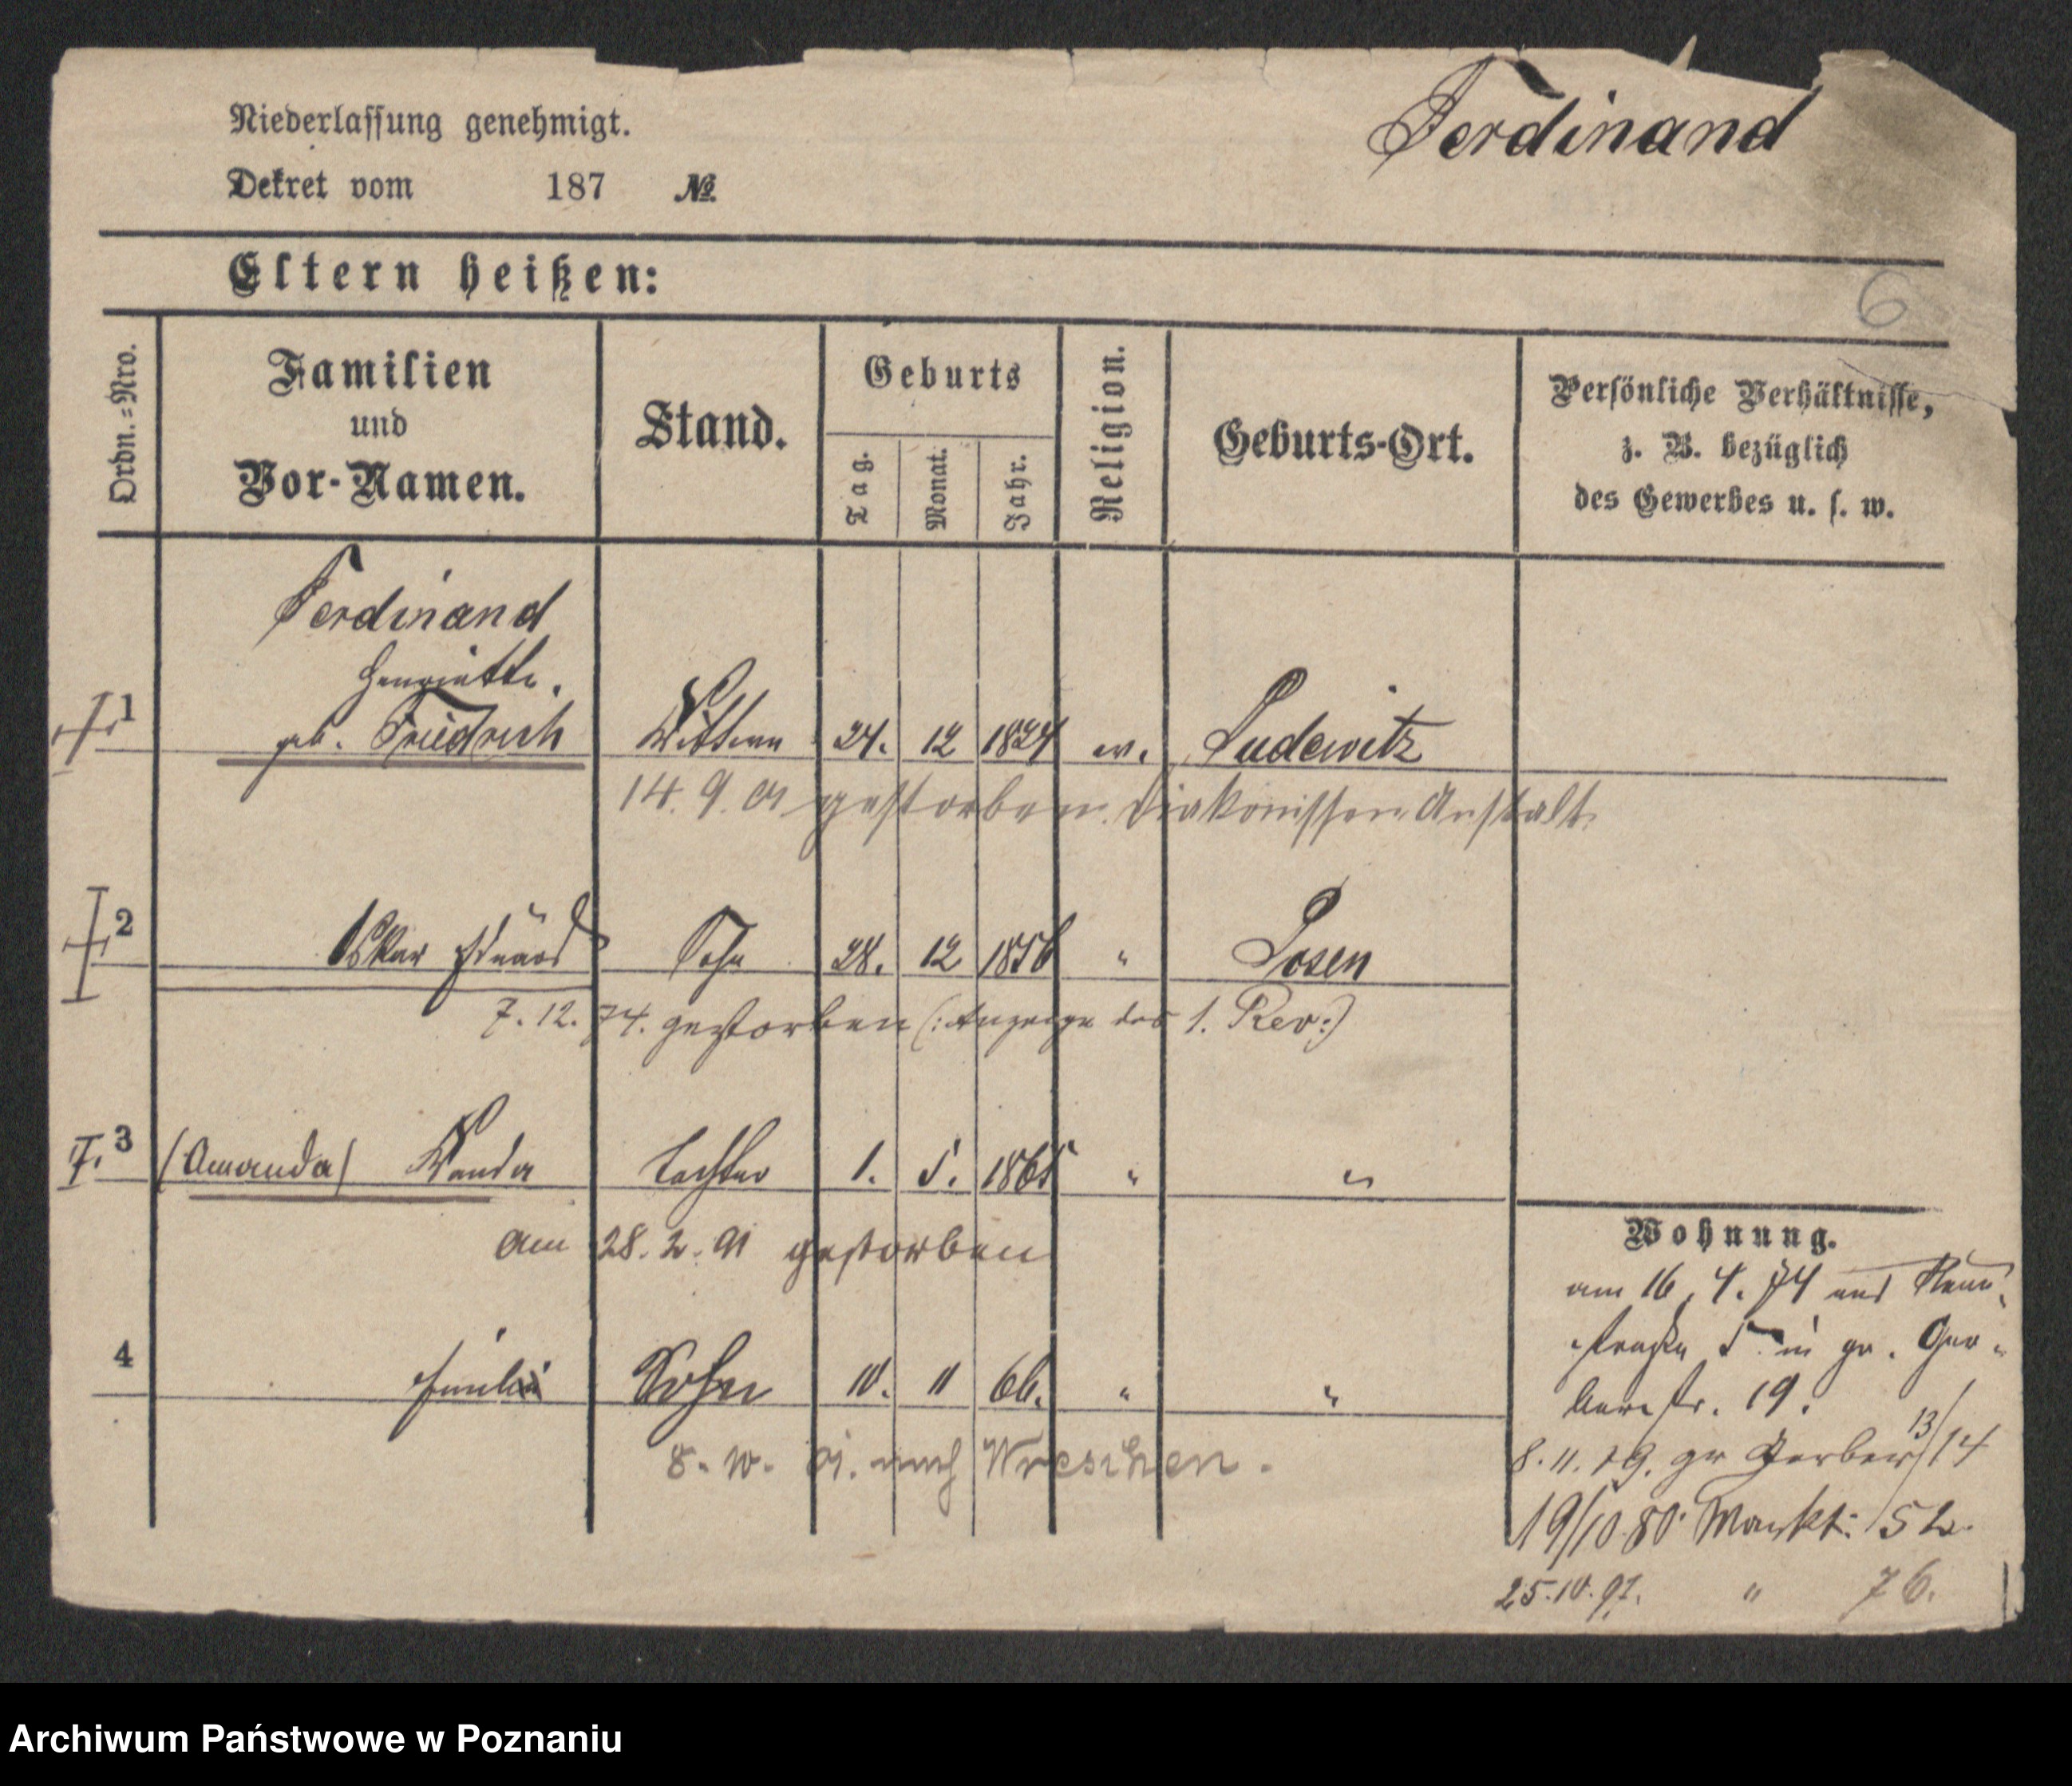 Niederlassung genehmigt.
Dekret vom 187 №
Ferdinand
6
Eltern heißen:
Ordn.=Nro.
Familien und Vor-Namen.
Stand.
Geburts
Tag.
Monat.
Jahr.
Religion.
Geburts-Ort.
Persönliche Verhältnisse,
z. B. bezüglich
des Gewerbes u. s. w.
Ferdinand
Henriette,
1 geb. Friedrich Wittwe 24. 12 1824 ev. Ludewitz
14. 9. 01 gestorben. Diakonissen Anstalt.
2 Oskar Eduard Sohn 28. 12 1856 " Posen
7. 12. 74. gestorben (: Anzeige des 1. Rev:)
3 (Amanda) Wanda Tochter 1. 5. 1865 " "
am 28. 2. 91 gestorben
4 Emil Sohn 10. 11 66. " "
8. 10. 01. nach Wreschen.
Wohnung.
am 16. 4. 74 aus
straße 5 in gr. Ger-
berstr. 19.
8. 11. 79. gr Gerber 13/14
19/10 80. Markt: 52.
25. 10. 97. " 76.
Archiwum Państwowe w Poznaniu